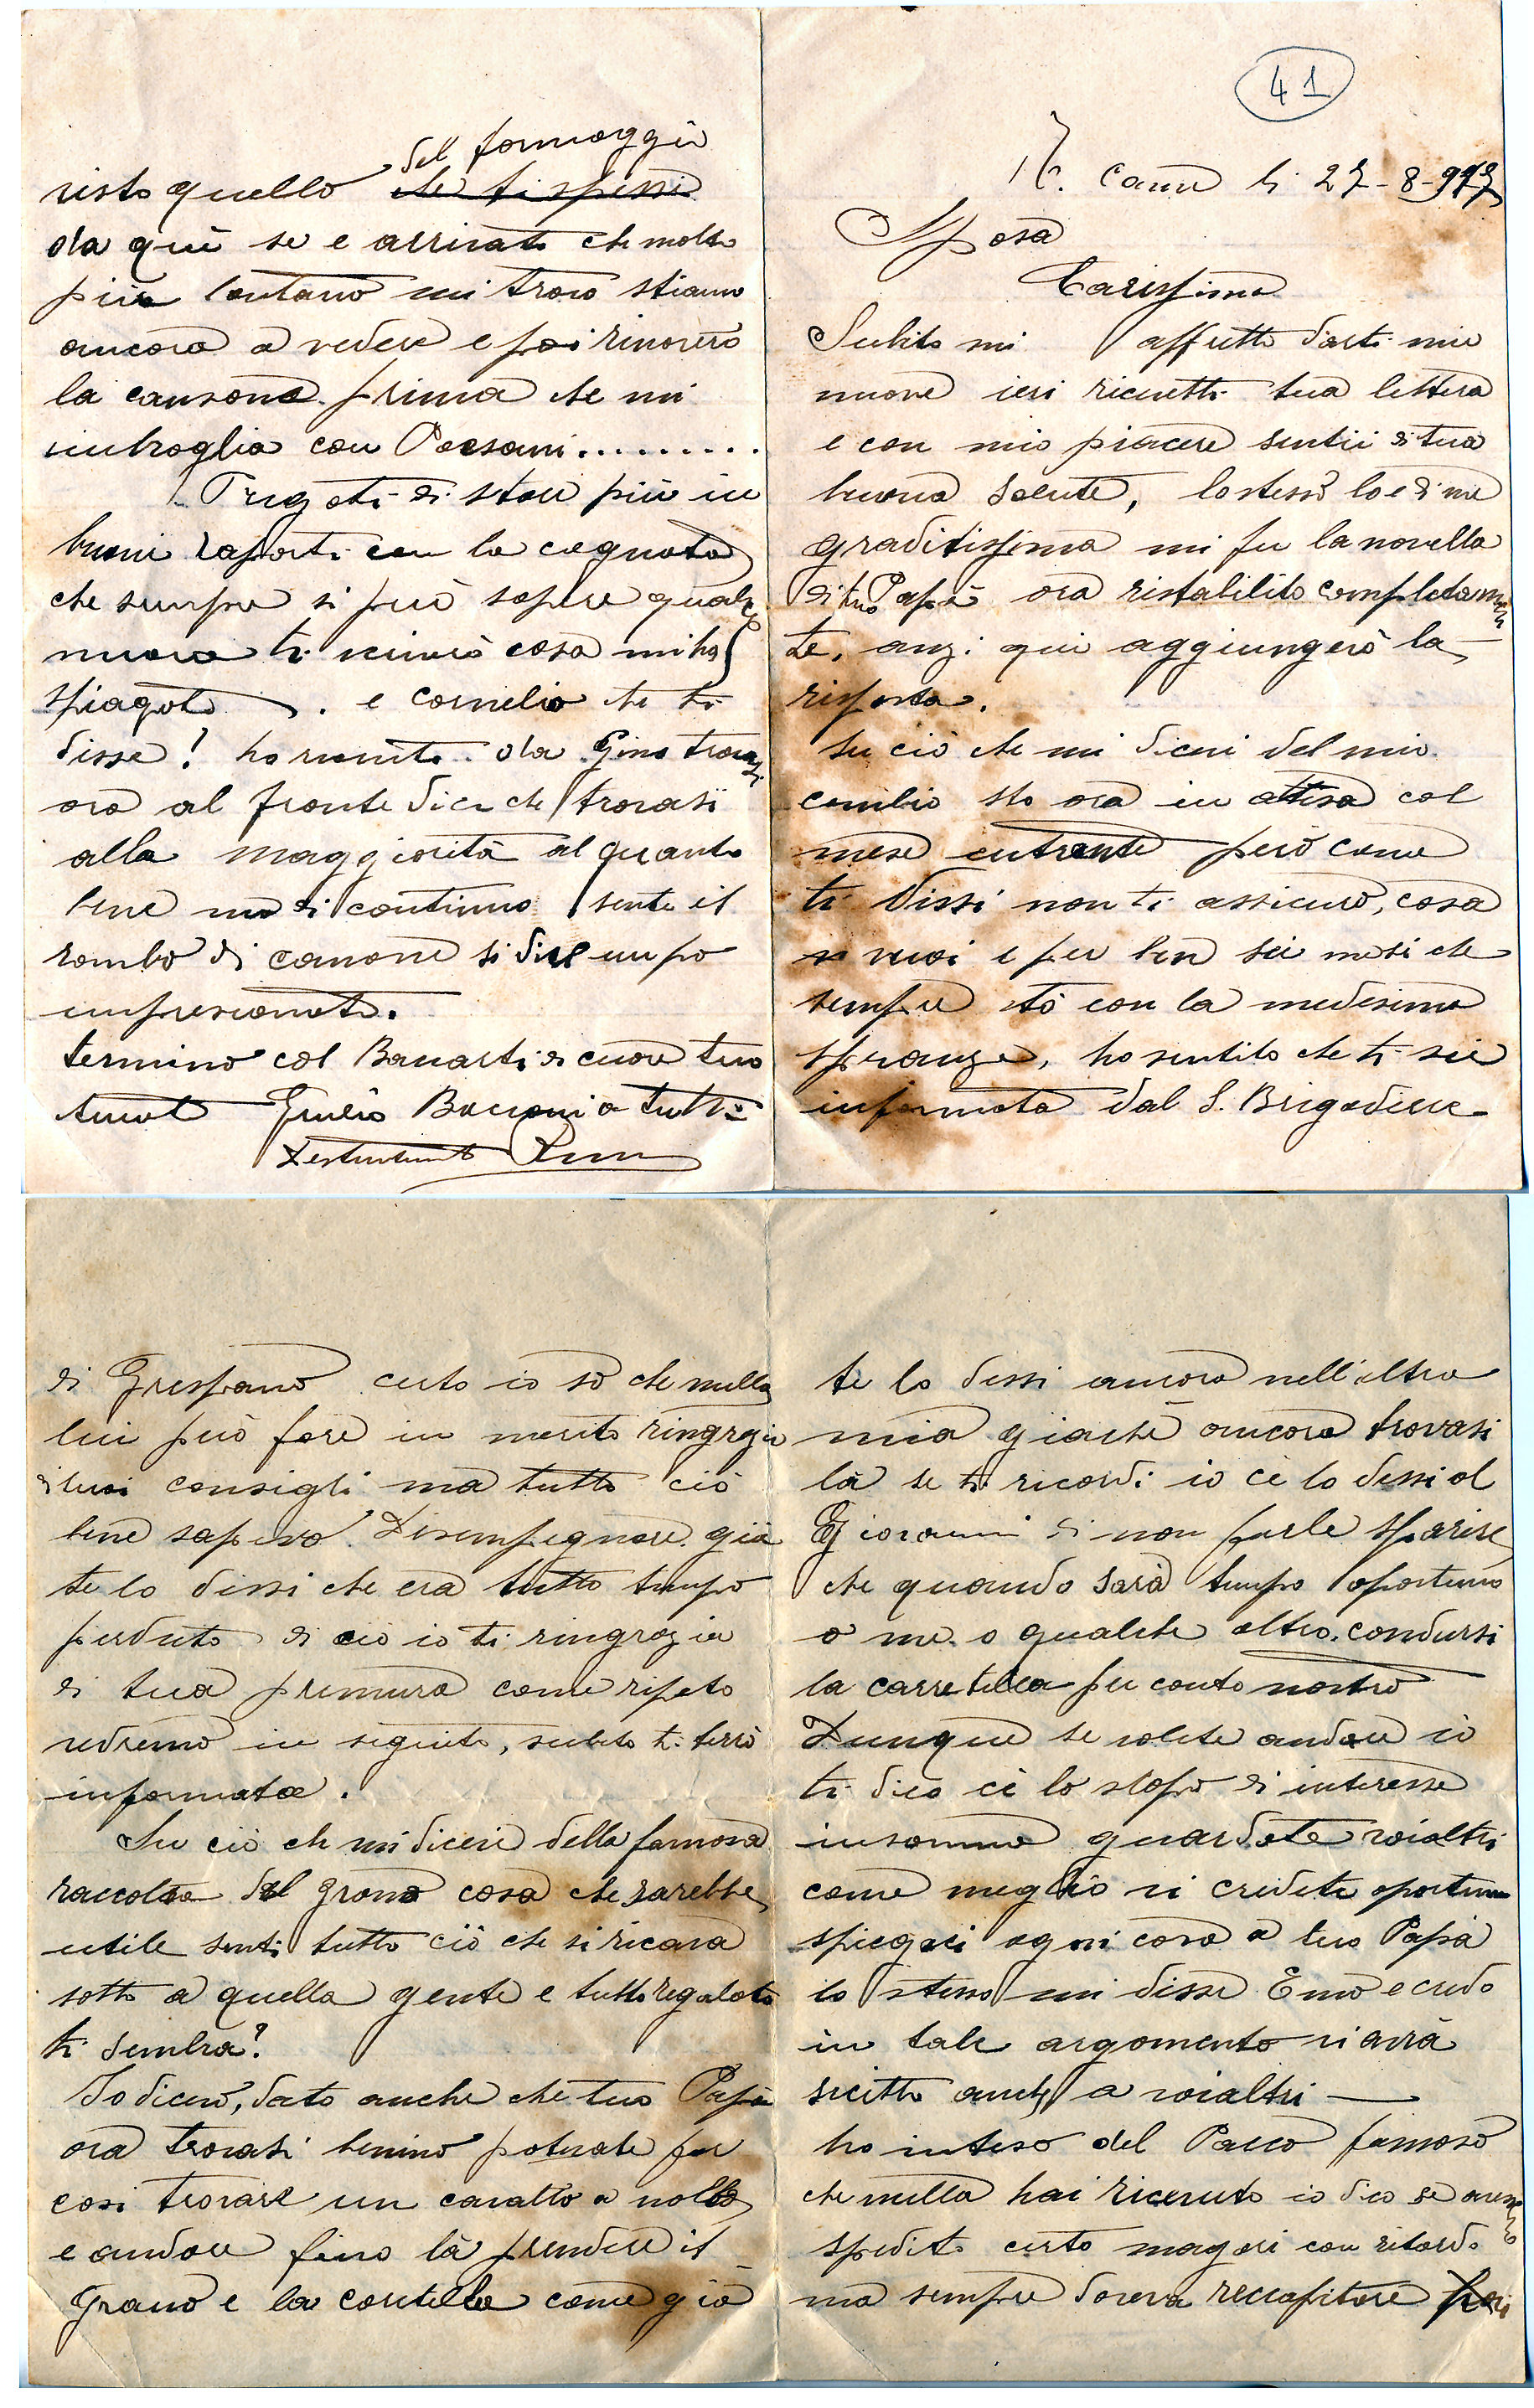 41
li 27-8-917
Sposa
Carissima
Subito mi affretto darti mie
nuove ieri ricevetti tua lettera
e con mio piacere sentii di tua
buona salute, lo stesso lo è di me
graditissima mi fu la novella
di tuo Papà ora ristabilito completamen
te, anzi qui aggiungerò la
risposta.
Su ciò che mi dicevi del mio
cambio sto ora in attesa col
mese entrante però come
ti dissi non ti assicuro, cosa
vuoi e per ben sei mesi che
sempre stò con la medesima
speranza, ho sentito che ti sei
informata dal S. Brigadiere
di Grespano certo io sò che nulla
lui può fare in merito ringrazio
i tuoi consigli ma tutto ciò
bene sapevo. Disimpegnare già
te lo dissi che era tutto tempo
perduto di ciò io ti ringrazio
di tua premura come ripeto
vedremo in seguito, subito ti terrò
informata.
Su ciò che mi dicevi della famosa
raccolta del grano cosa che sarebbe
utile senti tutto ciò che si ricava
sotto a quella gente e tutto regalato
ti sembra?
Io dicevo, dato anche che tuo Papà
ora trovasi benino potevate per
cosi trovare un cavallo a nollo
e andare fino là prendere il
grano e la caretella come già
te lo dissi ancora nell'altra
mia giachè ancora trovasi
là se ti ricordi io cè lo dissi al
Giovanni di non farle sparire
che quando sarà tempo oportuno
o me o qualche altro condursi
la carretella per conto nostro
Dunque se volete andare io
ti dico cè lo scopo di interesse
insomma guardate voialtri
come meglio vi credete oportuno
spiegaci ogni cosa a tuo Papà
lo stesso mi disse Emo e credo
in tale argomento vi avrà
scritto anche a voialtri
ho inteso del Pacco famoso
che nulla hai ricevuto io dico se avessero
spedito certo magari con ritardo
ma sempre doveva reccapitare
visto quello del formaggio
che ti spessi
da quì se e arrivato che molto
più lontano mi trovo stiamo
ancora a vedere e poi rinoverò
la cansone prima che mi
imbroglia con
Pregoti di stare più in
buoni raporti con la cognata
che sempre si può sapere qualche
nuova ti scrivo cosa mi ha
spiagato. e Cornelio che ti
disse! ho ricevuto da Gino trovasi
ora al fronte dice che trovasi
alla maggiorità al quanto
bene ma di continuo sente il
rombo di canone si dice un po
impresionato.
termino col Baciarti di cuore tuo
Giulio Bacioni a tutti